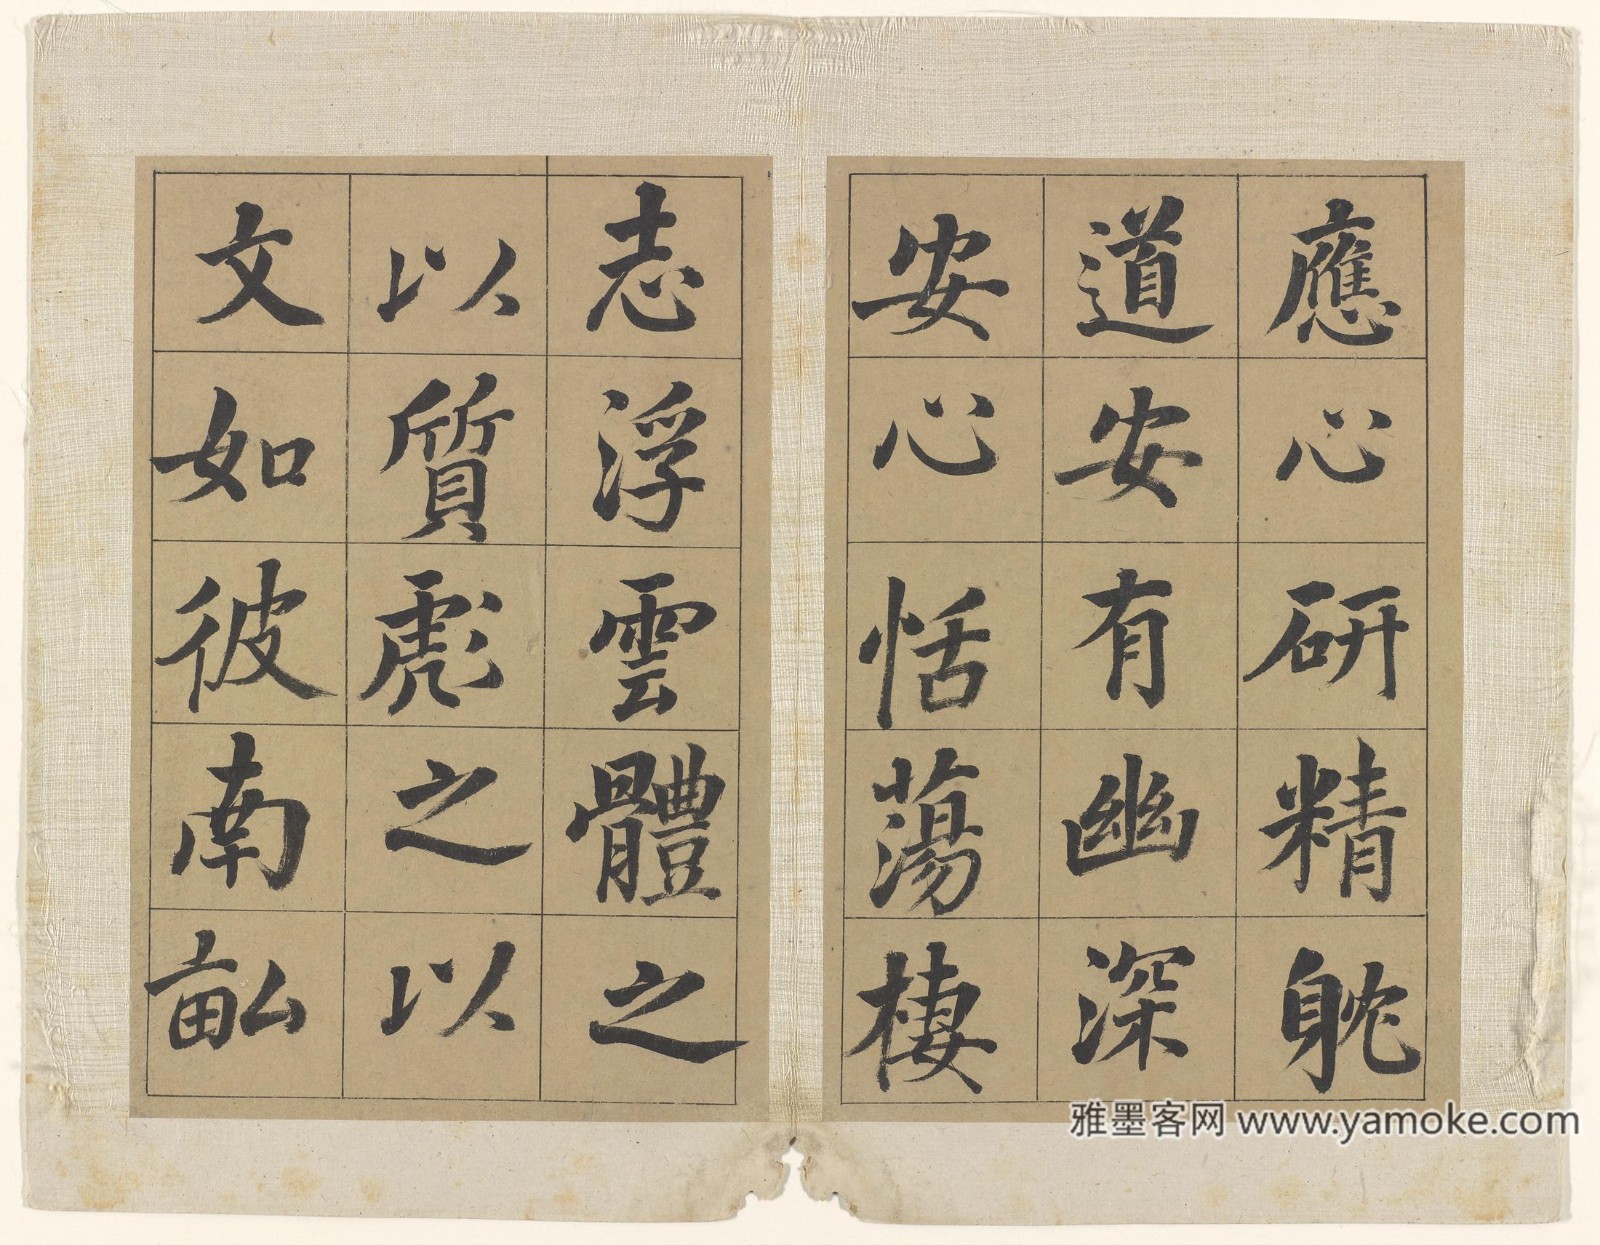 應心研精躭
道安安有幽深
安心恬蕩棲
志浮雲體之
以質彪之以
文如彼南畝
雅墨客网 www.yamoke.com